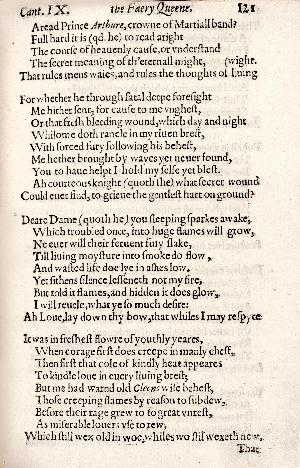 Cant. IX. the Faery Queene. 121
Aread Prince Arthure, crowne of Martiall band?
Full hard it is (qd. he) to read aright
The course of heavenly cause, or vnderstand
The secret meaning of th'eternall might, (wight.
That rules mens waies, and rules the thoughts of liuing
For whether he through fatal deepe foresight
Me hither sent, for cause to me vnghest,
Or that fresh bleeding wound, which day and night
Whilome doth rancle in my riuen brest,
With forced fury following his behest,
Me hether brought by wayes yet neuer found,
You to haue helpt I hold my selfe yet blest.
Ah courteous knight (quoth she) what secret wound
Could euer find, to grieue the gentlest hart on ground?
Deare Dame (quoth he) you sleeping sparkes awake,
Which troubled once, into huge flames will grow,
Ne euer will their feruent fury slake,
Till liuing moysture into smoke do flow,
And wasted life doe lye in ashes low.
Yet sithens silence lesseneth not my fire,
But told it flames, and hidden it does glow,
I will reuele, what ye so much desire:
Ah Loue, lay down thy bow, that whiles I may respyre
It was in freshest flowre of youthly yeares,
When corage first does creepe in manly chest,
Then first that cole of kindly heat appeares
To kindle loue in euery liuing brest;
But me had warnd old Cleons wise behest,
Those creeping flames by reason to subdew,
Before their rage grew to so great vnrest,
As miserable louers vse to rew,
Which still wex old in woe, whiles wo stil wexeth new.
That